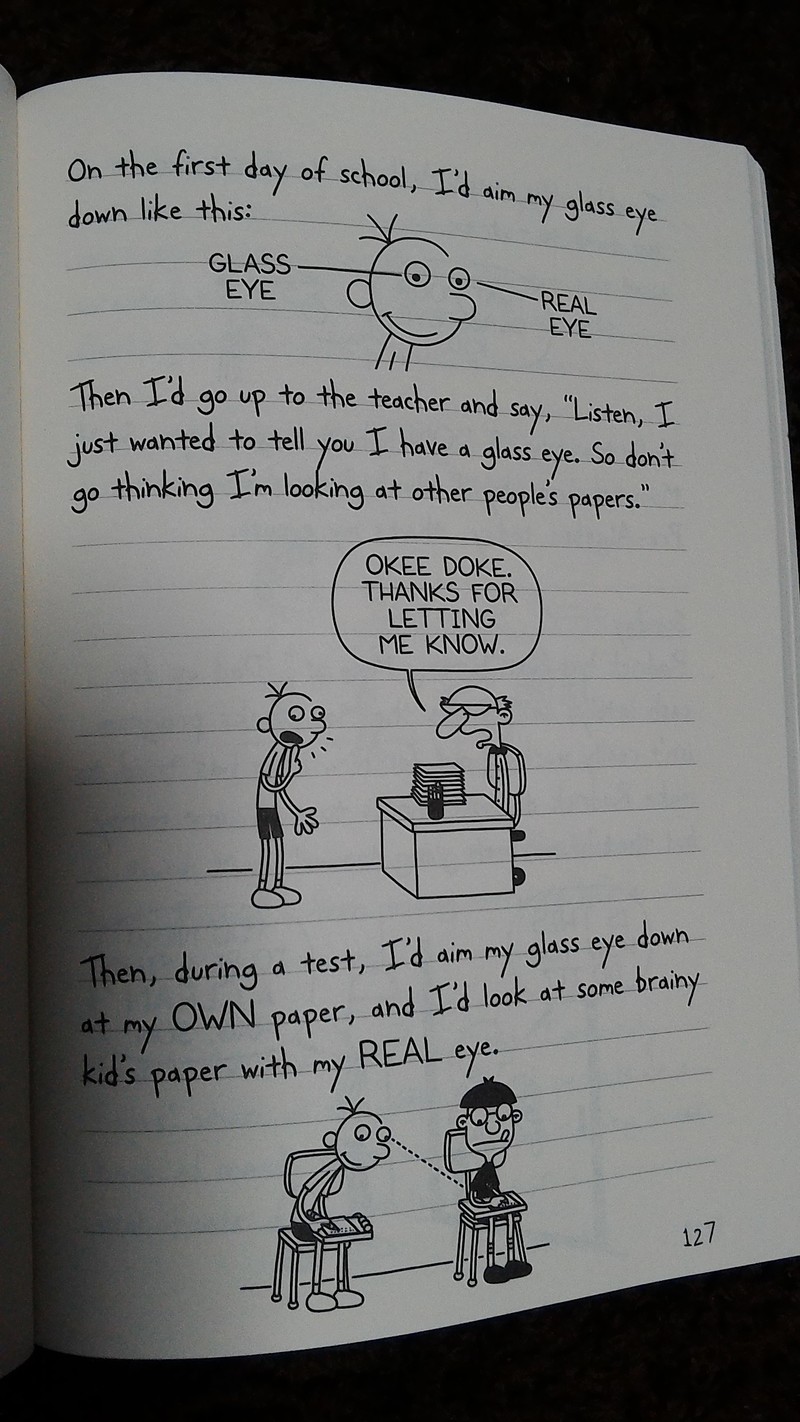 On the first day of school, I'd aim my glass eye
down like this:
GLASS
EYE
REAL
EYE
Then I'd go up to the teacher and say, "Listen, I
just wanted to tell you I have a glass eye. So don't
go thinking I'm looking at other people's papers."
OKEE DOKE.
THANKS FOR
LETTING
ME KNOW.
Then, during a test, I'd aim my glass eye down
at my OWN paper, and I'd look at some brainy
kid's paper with my REAL eye.
127